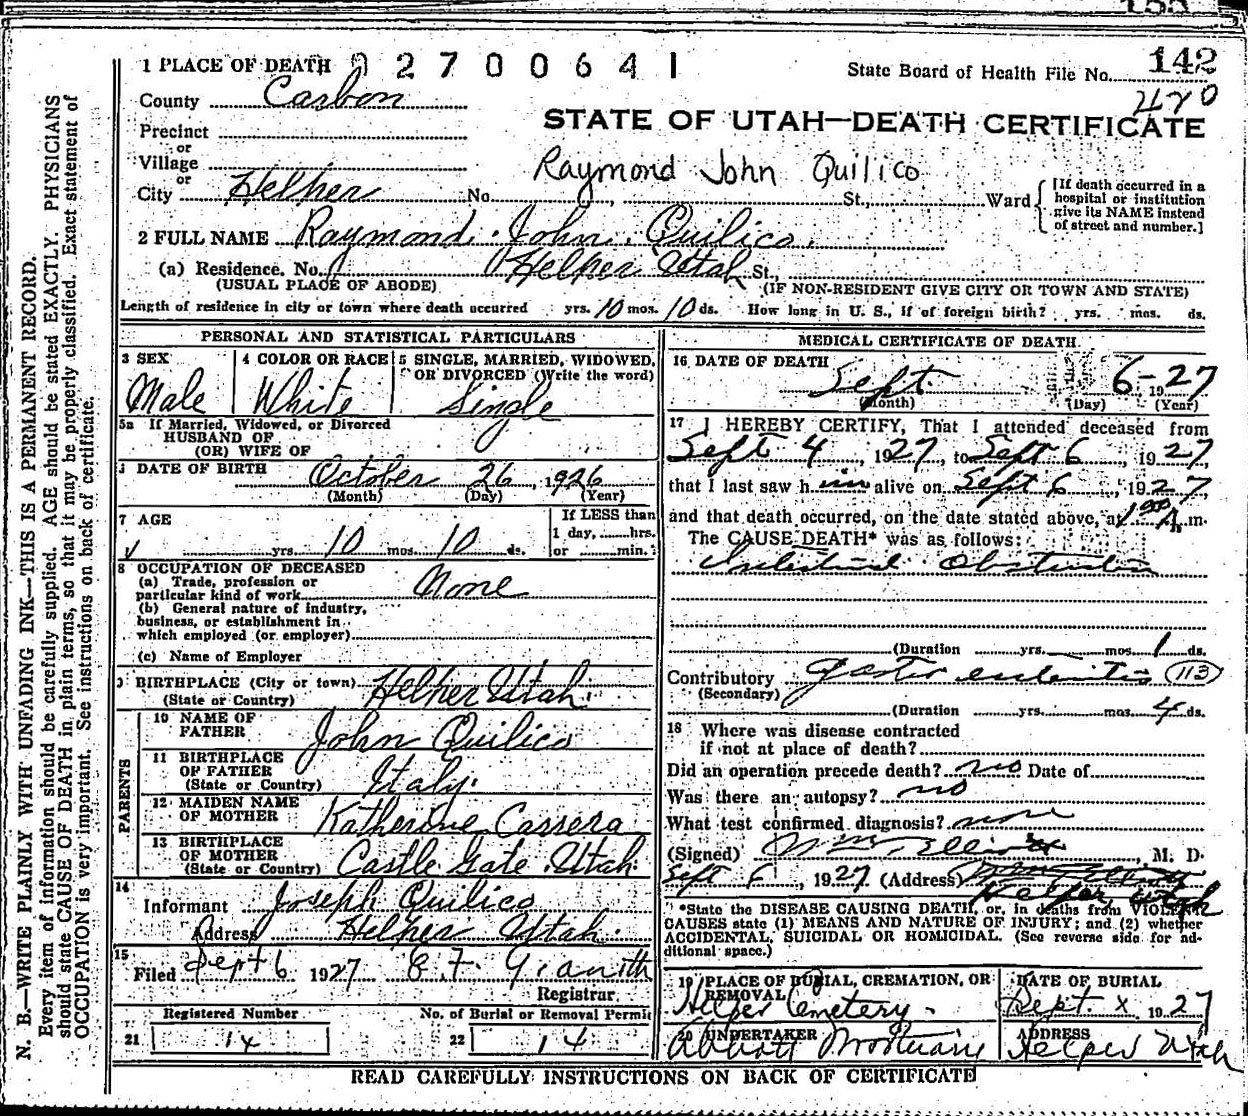 155
1 PLACE OF DEATH 02700641 State Board of Health File No. 142
County Carbon 420
STATE OF UTAH—DEATH CERTIFICATE
Precinct
or
Village Raymond John Quilico
or
City Helper No. St., Ward
[If death occurred in a hospital or institution give its NAME instead of street and number.]
2 FULL NAME Raymond John Quilico.
(a) Residence. No. Helper Utah St.,
(USUAL PLACE OF ABODE) (IF NON-RESIDENT GIVE CITY OR TOWN AND STATE)
Length of residence in city or town where death occurred yrs. 10 mos. 10 ds. How long in U. S., if of foreign birth? yrs. mos. ds.
PERSONAL AND STATISTICAL PARTICULARS
3 SEX Male
4 COLOR OR RACE White
5 SINGLE, MARRIED, WIDOWED, OR DIVORCED (Write the word) Single
5a If Married, Widowed, or Divorced
HUSBAND OF
(OR) WIFE OF
DATE OF BIRTH October 26, 1926
(Month) (Day) (Year)
7 AGE yrs. 10 mos. 10 ds.
If LESS than 1 day, hrs. or min.
8 OCCUPATION OF DECEASED
(a) Trade, profession or
particular kind of work None
(b) General nature of industry,
business, or establishment in
which employed (or employer)
(c) Name of Employer
9 BIRTHPLACE (City or town) Helper Utah.
(State or Country)
PARENTS
10 NAME OF FATHER John Quilico
11 BIRTHPLACE OF FATHER (State or Country) Italy.
12 MAIDEN NAME OF MOTHER Katherine Cassera
13 BIRTHPLACE OF MOTHER (State or Country) Castle Gate Utah.
14 Informant Joseph Quilico
Address Helper Utah.
15 Filed Sept 6 1927
Registrar.
Registered Number
21 14
No. of Burial or Removal Permit
22 14
MEDICAL CERTIFICATE OF DEATH
16 DATE OF DEATH
Sept. 6-1927
(Month) (Day) (Year)
17 I HEREBY CERTIFY, That I attended deceased from
Sept 4, 1927, to Sept 6, 1927,
that I last saw him alive on Sept 6, 1927,
and that death occurred, on the date stated above, at 1 00 A. m.
The CAUSE DEATH* was as follows:
Intestinal Obstruction
(Duration yrs. mos. 1 ds.
Contributory gastro enteritis (113)
(Secondary)
(Duration yrs. mos. 4 ds.
18 Where was disease contracted
if not at place of death?
Did an operation precede death? no Date of
Was there an autopsy? no
What test confirmed diagnosis? none
(Signed) Wm. Elliott, M. D.
Sept 6, 1927 (Address) Helper, Utah
*State the DISEASE CAUSING DEATH, or, in deaths from VIOLENT
CAUSES state (1) MEANS AND NATURE OF INJURY; and (2) whether
ACCIDENTAL, SUICIDAL OR HOMICIDAL. (See reverse side for ad-
ditional space.)
19 PLACE OF BURIAL, CREMATION, OR REMOVAL Helper Cemetery.
DATE OF BURIAL Sept. x 1927
20 UNDERTAKER Abbott Mortuary
ADDRESS Helper Utah
READ CAREFULLY INSTRUCTIONS ON BACK OF CERTIFICATE
N. B.—WRITE PLAINLY WITH UNFADING INK—THIS IS A PERMANENT RECORD.
Every item of information should be carefully supplied. AGE should be stated EXACTLY. PHYSICIANS
should state CAUSE OF DEATH in plain terms, so that it may be properly classified. Exact statement of
OCCUPATION is very important. See instructions on back of certificate.